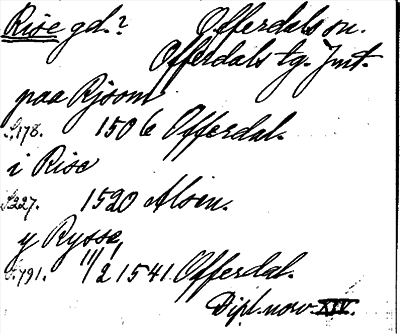 Rise gd.? Offerdals sn.
Offerdals tg. Jmt.
paa Rjsom
S. 178. 1506 Offerdal.
i Rise
S. 227. 1520 Alsen.
y Rysse
S. 791. 11/2 1541 Offerdal.
Dipl. norv. XIV.